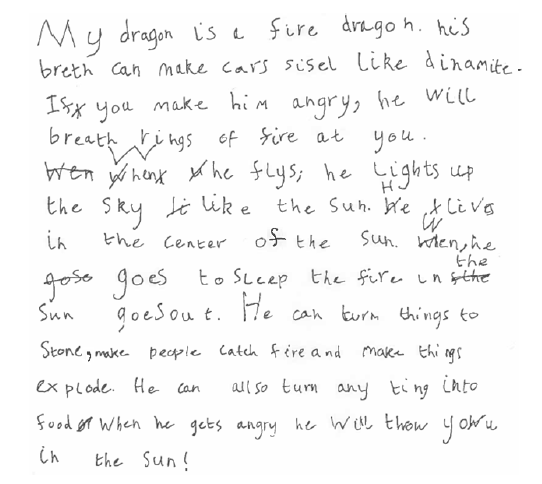 My dragon is a fire dragon. his
breth can make cars sisel like dinamite.
If you make him angry, he will
breath rings of fire at you.
Wen When he flys, he Lights up
the sky like the sun. He Lives
in the center of the sun. Wen, he
gose goes to sleep the fire in the
sun goes out. He can turn things to
stone, make people catch fire and make things
explode. He can allso turn any ting into
food When he gets angry he will thow yowu
in the sun!